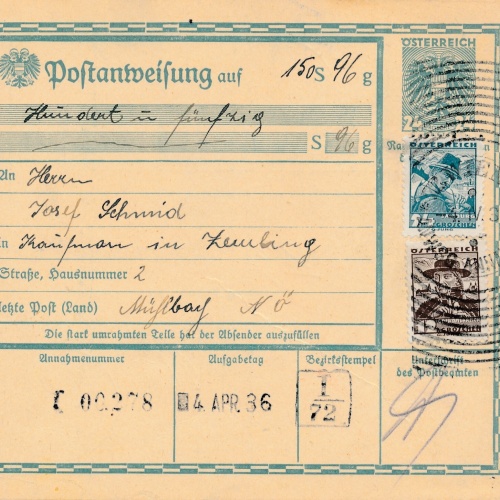 ÖSTERREICH
Postanweisung auf 150 S 96 g
Hundert u fünfzig
S 96 g
An Herrn
Josef Schmid
in Kaufman in Zemling
Straße, Hausnummer 2
letzte Post (Land) Mühlbach NÖ
Die stark umrahmten Teile hat der Absender auszufüllen
ÖSTERREICH
GROSCHEN
ÖSTERREICH
GROSCHEN
Annahmenummer Aufgabetag Bezirksstempel Unterschrift
des Postbeamten
00278 4. APR. 36 I
72